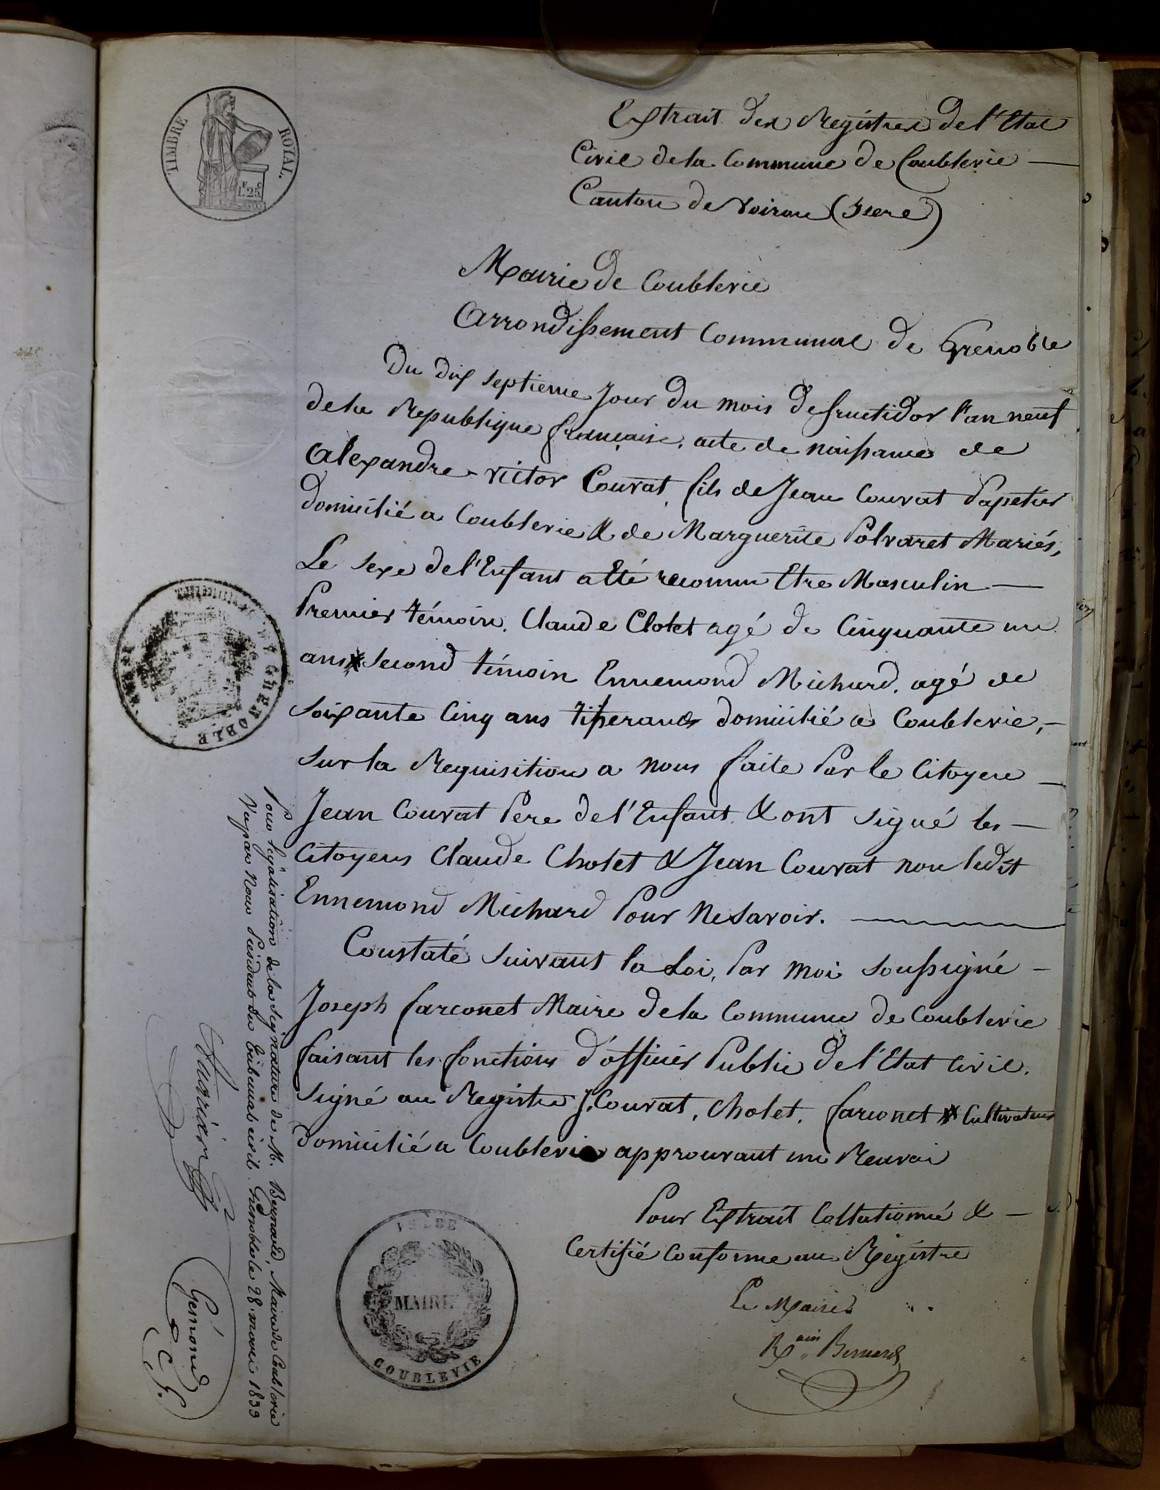 TIMBRE ROYAL.
1f 25c
Extrait des Registres de l'Etat
Civil de la Commune de Coublevie
Canton de Voiron (Isere)
Mairie de Coublevie
Arrondissement Communal de Grenoble
Du dix septieme Jour Du mois de fructidor l'an neuf
de la Republique française, acte de naissance de
Alexandre-victor Couvat fils de Jean Couvat Papetier
Domicilié a Coublevie & de Marguerite Polvaret Mariés,
Le sexe de l'Enfant a Eté reconnu Etre Masculin
Premier témoin, Claude Cholet agé de Cinquante un
ans x second témoin Ennemond Michard, agé de
soixante Cinq ans tisserands domicilié a Coublevie,
sur la Requisition a nous faite Par le Citoyen
Jean Couvat Pere de l'Enfant & ont signé les
Citoyens Claude Cholet & Jean Couvat non ledit
Ennemond Michard Pour ne savoir.
Constaté suivant la Loi, Par moi soussigné
Joseph farconet Maire de la Commune de Coublevie
faisant les fonctions d'officier Public de l'Etat Civil.
Signé au Registre J. Couvat, Cholet, farconet x Cultivateur
domicilié a Coublevie approuvant un Renvoi
Pour Extrait Collationné &
Certifié Conforme au Régistre
Le Maire
Bernard
MAIRIE
COUBLEVIE
GRENOBLE
Pour légalisation de la signature de M. Bernard, Maire de Coublevie
Vu par Nous Président du Tribunal civil. Grenoble le 28 mars 1833
Gémond
C. G.